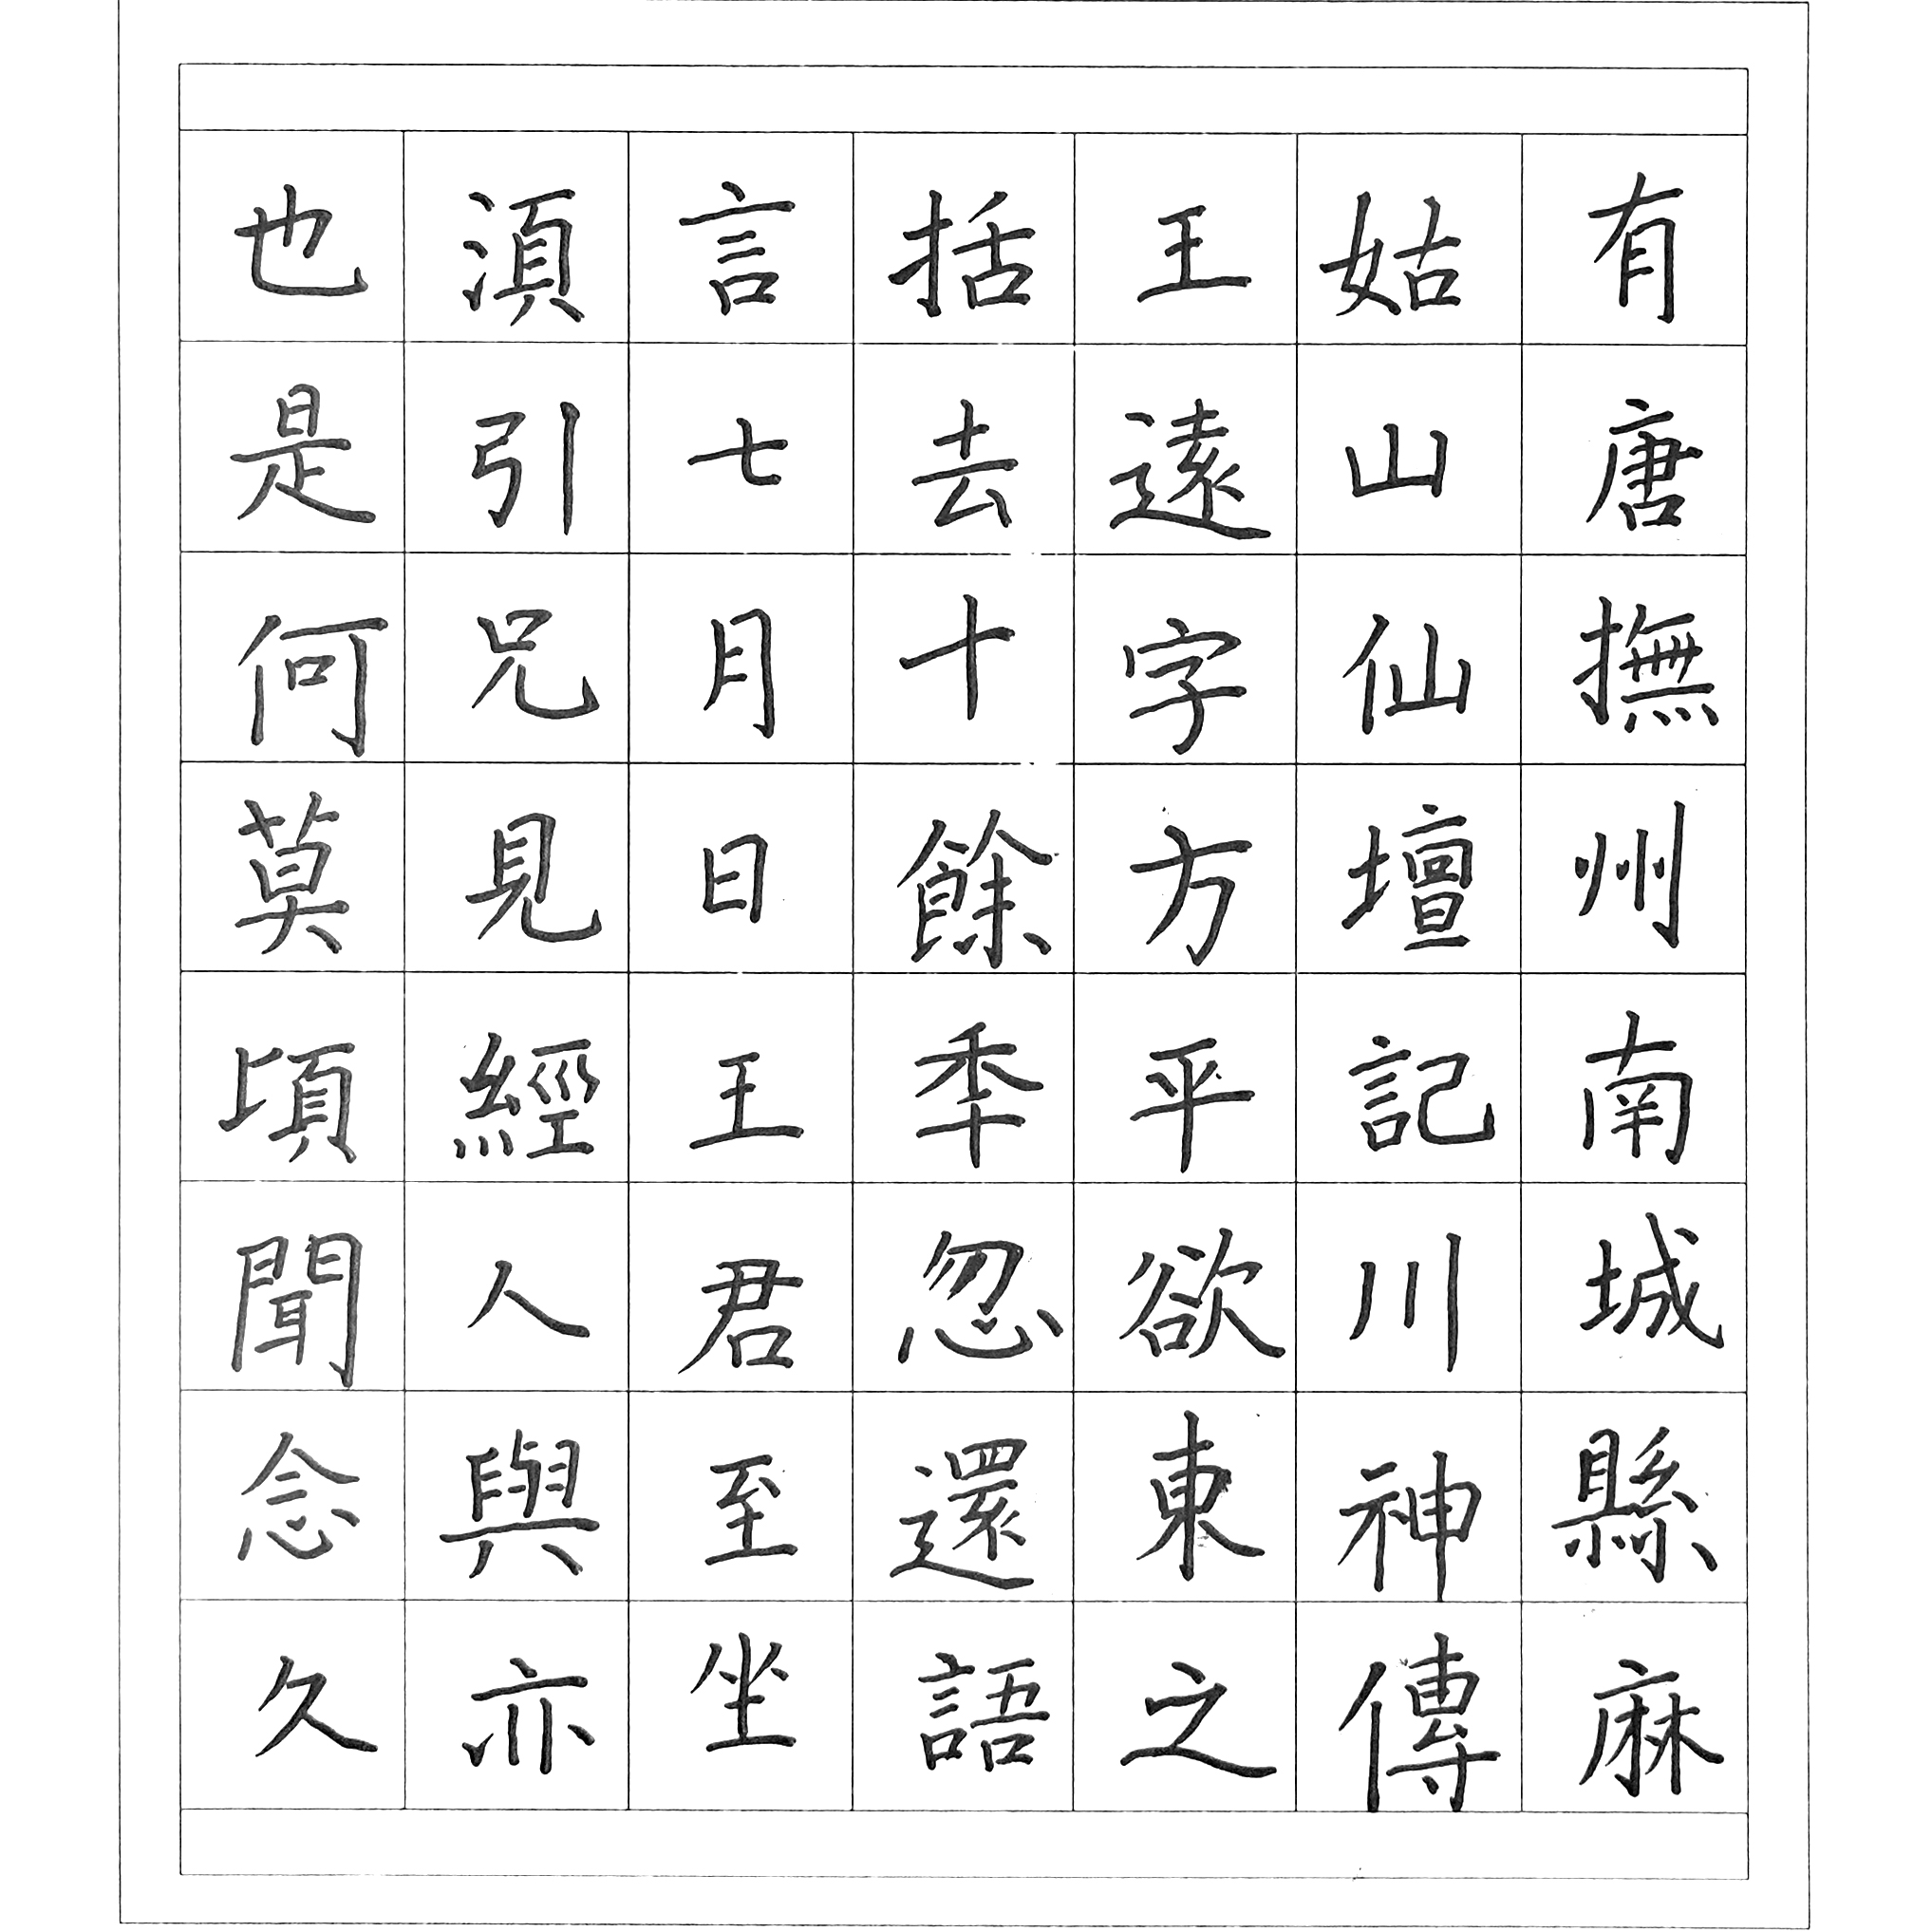 有唐撫州南城縣麻
姑山仙壇記川神傳
王遠字方平欲東之
括去十餘年忽還語
言七月日王君至坐
湏引兄見經人與亦
也是何莫頃聞念久